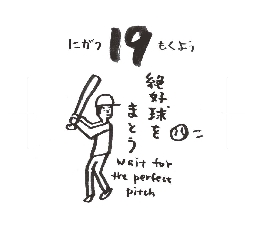 にがつ 19 もくよう
絶好球を
まとう
wait for
the perfect
pitch